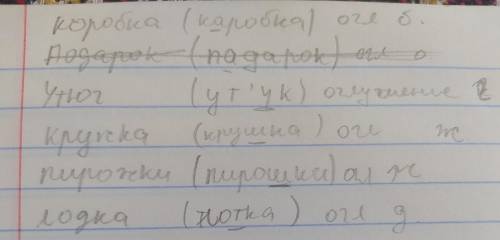 коробка (каробка) огл б.
Подарок (падарок) огл о
Утюг (ут'ук) оглушение г
кружка (крушка) огл ж
пирожки (пирошки) ал ж
лодка (лотка) огл д